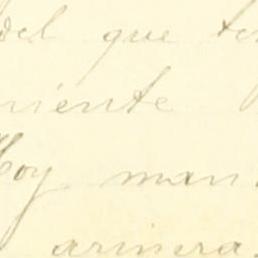 del que te
niente
Hoy man
arinera